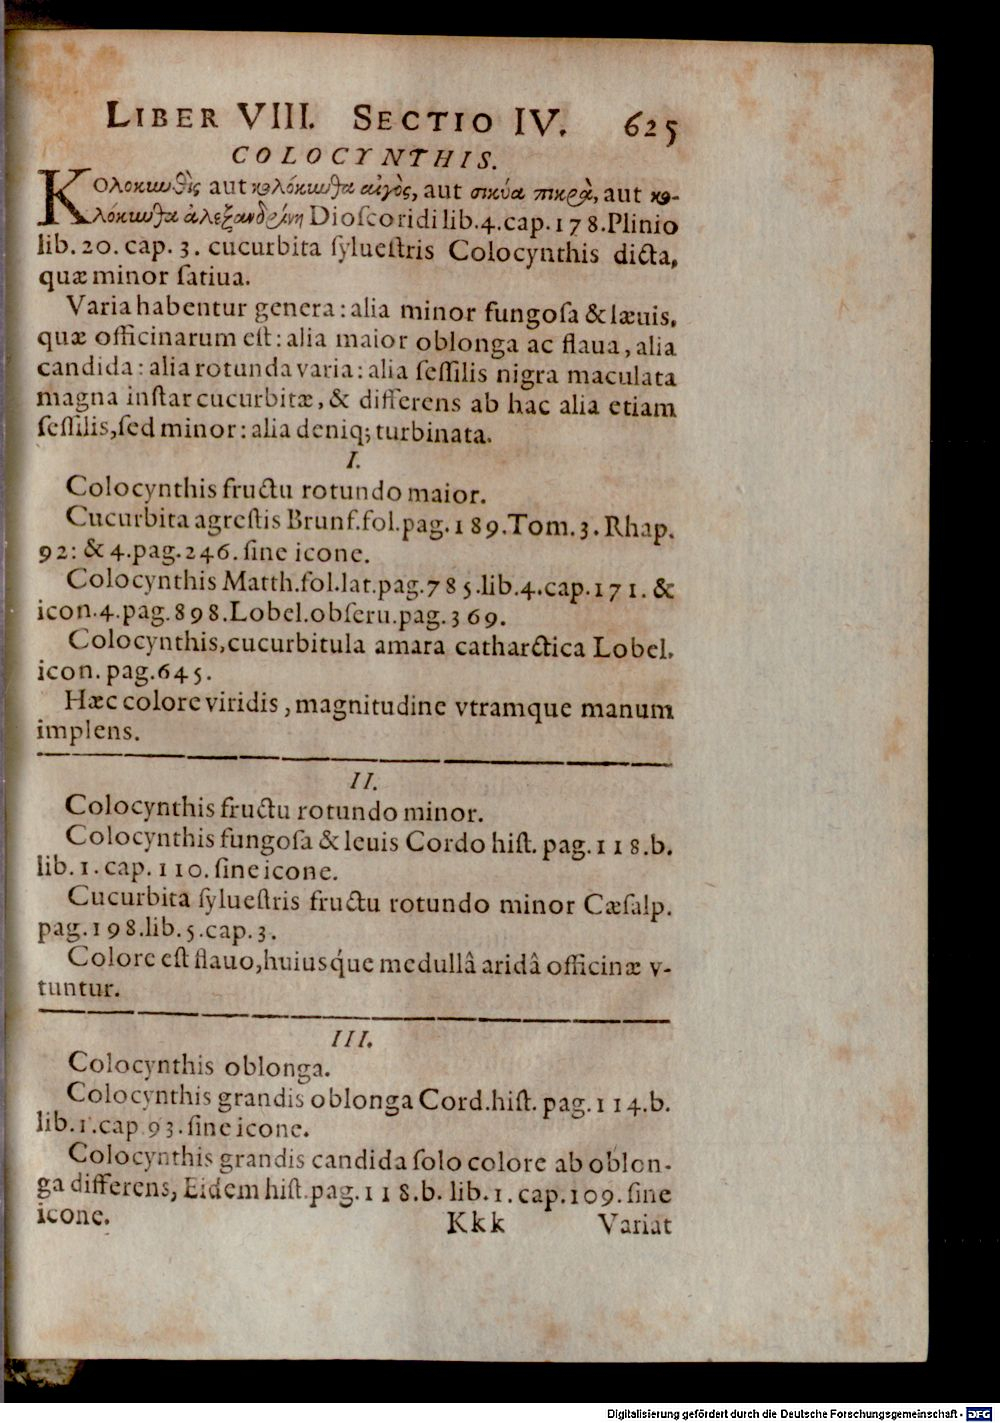 LIBER VIII. SECTIO IV. 625
COLOCYNTHIS.
Κολοκυνθὶς aut κολόκυνθα αἰγὸς, aut σικύα πικρὰ, aut κο-
λόκυνθα ἀλεξανδρίνη Dioſcoridi lib. 4. cap. 178. Plinio
lib. 20. cap. 3. cucurbita ſylueſtris Colocynthis dicta,
quæ minor ſatiua.
Varia habentur genera: alia minor fungoſa & læuis,
quæ officinarum eſt: alia maior oblonga ac flaua, alia
candida: alia rotunda varia: alia ſeſſilis nigra maculata
magna inſtar cucurbitæ, & differens ab hac alia etiam
ſeſſilis, ſed minor: alia deniq; turbinata.
I.
Colocynthis fructu rotundo maior.
Cucurbita agreſtis Brunf. fol. pag. 189. Tom. 3. Rhap.
92: & 4. pag. 246. ſine icone.
Colocynthis Matth. fol. lat. pag. 785. lib. 4. cap. 171. &
icon. 4. pag. 898. Lobel. obſeru. pag. 369.
Colocynthis, cucurbitula amara catharctica Lobel.
icon. pag. 645.
Hæc colore viridis, magnitudine vtramque manum
implens.
II.
Colocynthis fructu rotundo minor.
Colocynthis fungoſa & leuis Cordo hiſt. pag. 118. b.
lib. 1. cap. 110. ſine icone.
Cucurbita ſylueſtris fructu rotundo minor Cæſalp.
pag. 198. lib. 5. cap. 3.
Colore eſt flauo, huiusq́ue medullâ aridâ officinæ v-
tuntur.
III.
Colocynthis oblonga.
Colocynthis grandis oblonga Cord. hiſt. pag. 114. b.
lib. 1. cap. 93. ſine icone.
Colocynthis grandis candida ſolo colore ab oblon-
ga differens, Eidem hiſt. pag. 118. b. lib. 1. cap. 109. ſine
icone. Kkk Variat
Digitalisierung gefördert durch die Deutsche Forschungsgemeinschaft - DFG